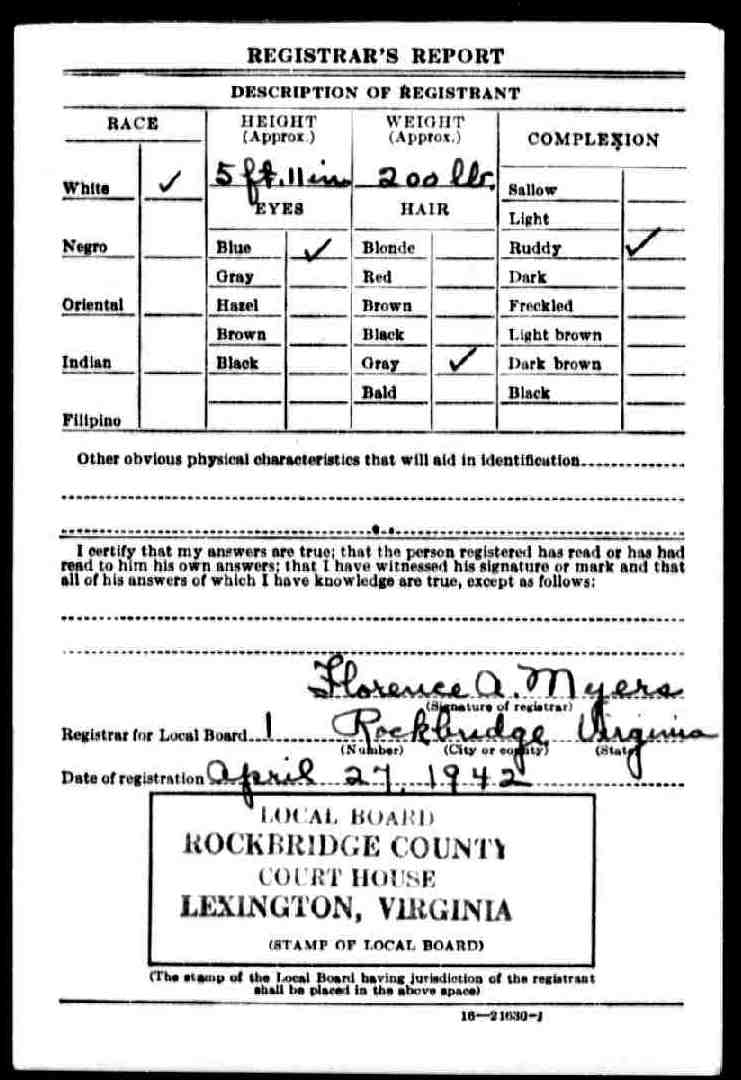 REGISTRAR'S REPORT
DESCRIPTION OF REGISTRANT
RACE
HEIGHT (Approx.)
WEIGHT (Approx.)
COMPLEXION
White ✓
5 ft. 11 in
200 lbs.
Sallow
EYES
HAIR
Light
Negro
Blue ✓
Blonde
Ruddy ✓
Gray
Red
Dark
Oriental
Hazel
Brown
Freckled
Brown
Black
Light brown
Indian
Black
Gray ✓
Dark brown
Bald
Black
Filipino
Other obvious physical characteristics that will aid in identification
I certify that my answers are true; that the person registered has read or has had
read to him his own answers; that I have witnessed his signature or mark and that
all of his answers of which I have knowledge are true, except as follows:
Florence A. Myers
(Signature of registrar)
Registrar for Local Board 1 Rockbridge Virginia
(Number) (City or county) (State)
Date of registration April 27, 1942
LOCAL BOARD
ROCKBRIDGE COUNTY
COURT HOUSE
LEXINGTON, VIRGINIA
(STAMP OF LOCAL BOARD)
(The stamp of the Local Board having jurisdiction of the registrant
shall be placed in the above space)
16—21630-1